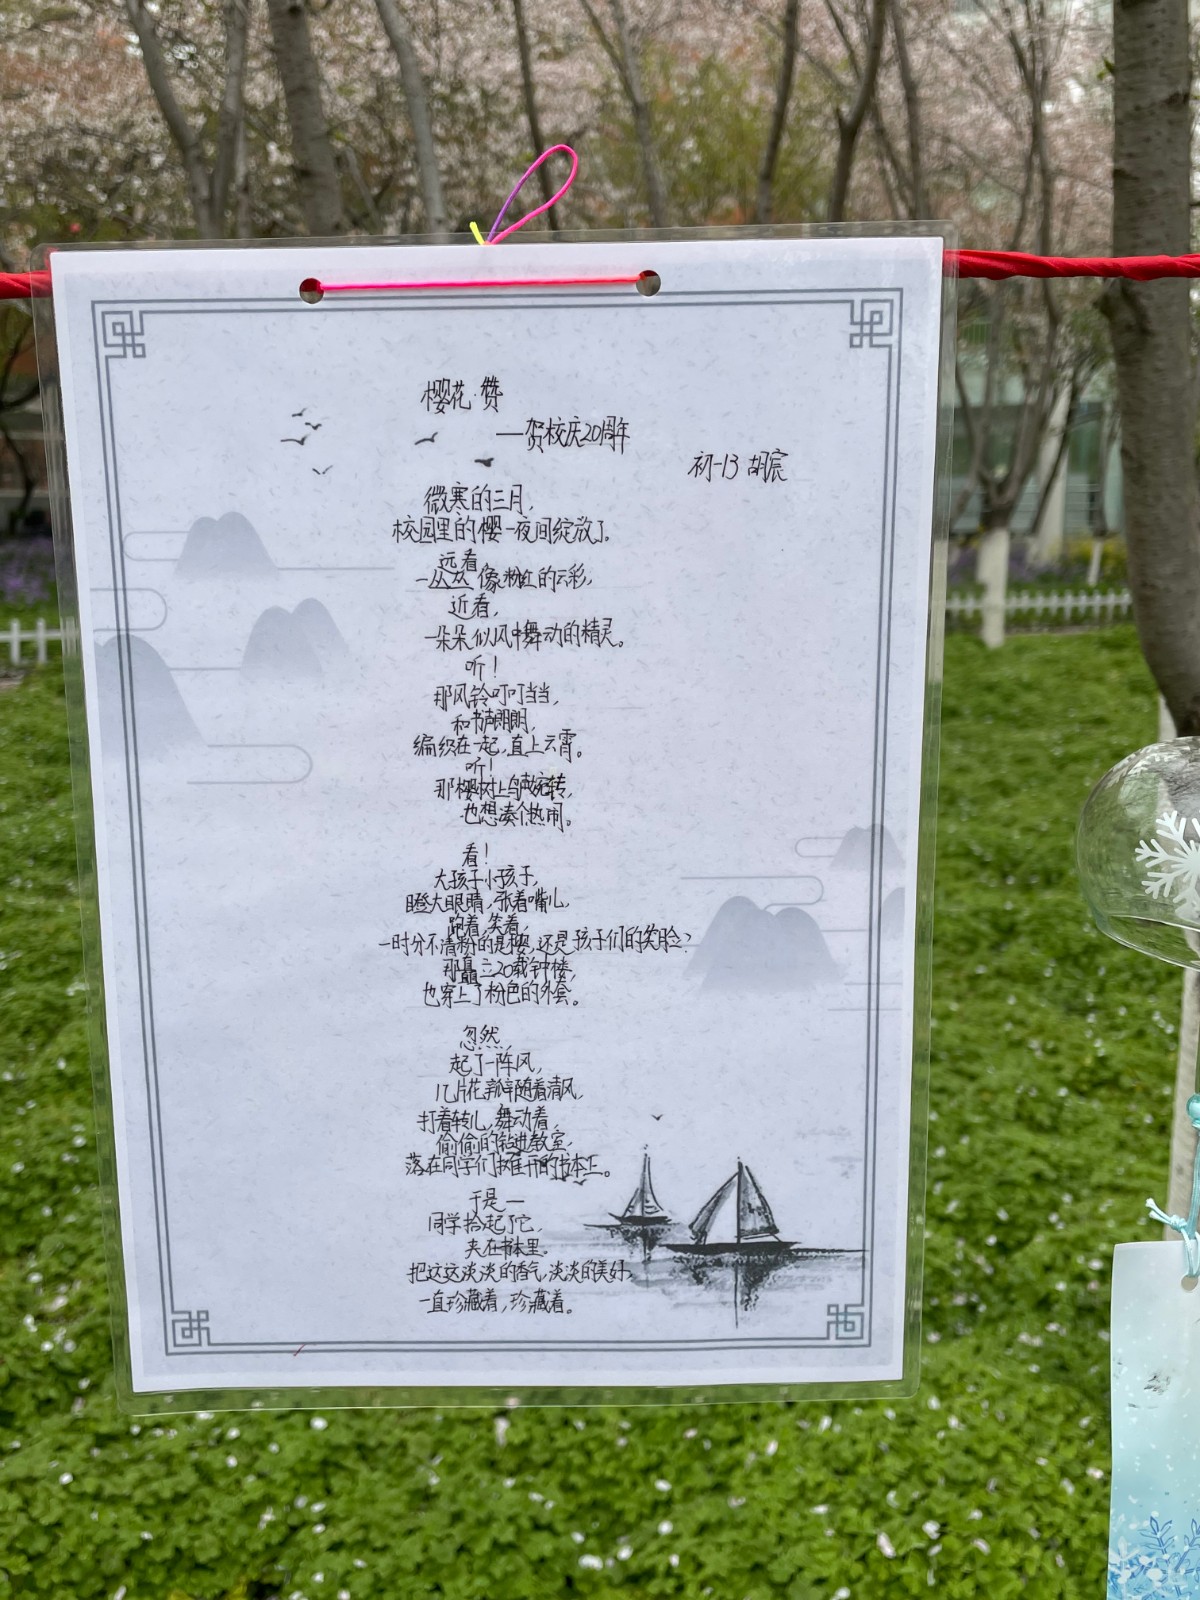 樱花·赞
—贺校庆20周年
初一13 胡宸
微寒的三月,
校园里的樱一夜间绽放了。
远看,
一丛丛像粉红的云彩,
近看,
一朵朵似风中舞动的精灵。
听!
那风铃叮叮当当,
和书声朗朗,
编织在一起,直上云霄。
听!
那樱树上鸟声婉转,
也想凑个热闹。
看!
大孩子小孩子,
瞪大眼睛,张着嘴儿,
跑着,笑着,
一时分不清粉的是樱,还是孩子们的笑脸?
那矗立20载钟楼,
也穿上了粉色的外套。
忽然,
起了一阵风,
几片花瓣随着清风,
打着转儿,舞动着,
偷偷的钻进教室,
落在同学们摊开的书本上。
于是—
同学拾起了它,
夹在书本里。
把这这淡淡的香气,淡淡的美好,
一直珍藏着,珍藏着。